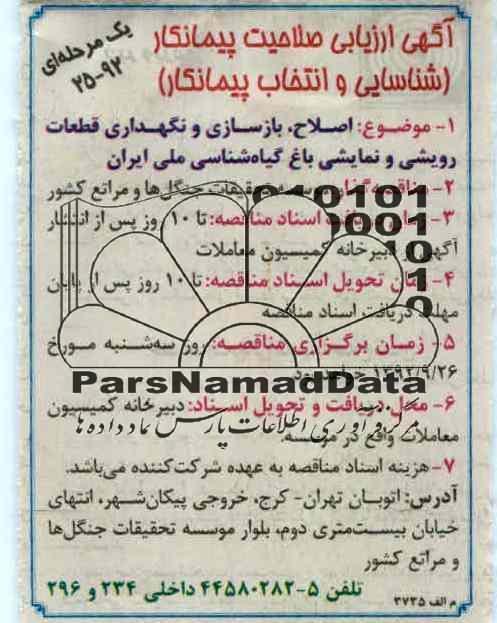 آگهی ارزیابی صلاحیت پیمانکار
(شناسایی و انتخاب پیمانکار)
یک مرحله‌ای
۲۵-۹۲
۱- موضوع: اصلاح، بازسازی و نگهداری قطعات
رویشی و نمایشی باغ گیاه‌شناسی ملی ایران
۲- مناقصه‌گذار: موسسه تحقیقات جنگل‌ها و مراتع کشور
۳- زمان دریافت اسناد مناقصه: تا ۱۰ روز پس از انتشار
آگهی از دبیرخانه کمیسیون معاملات
۴- زمان تحویل اسناد مناقصه: تا ۱۰ روز پس از پایان
مهلت دریافت اسناد مناقصه
۵- زمان برگزاری مناقصه: روز سه‌شنبه مورخ
۱۳۹۲/۹/۲۶ خواهد بود
ParsNamadData
۶- محل دریافت و تحویل اسناد: دبیرخانه کمیسیون
مرکز فرآوری اطلاعات پارس نماد داده‌ها
معاملات واقع در موسسه.
۷- هزینه اسناد مناقصه به عهده شرکت‌کننده می‌باشد.
آدرس: اتوبان تهران- کرج، خروجی پیکان‌شهر، انتهای
خیابان بیست‌متری دوم، بلوار موسسه تحقیقات جنگل‌ها
و مراتع کشور
تلفن ۵-۴۴۵۸۰۲۸۲ داخلی ۲۳۴ و ۲۹۶
م الف ۳۷۳۵